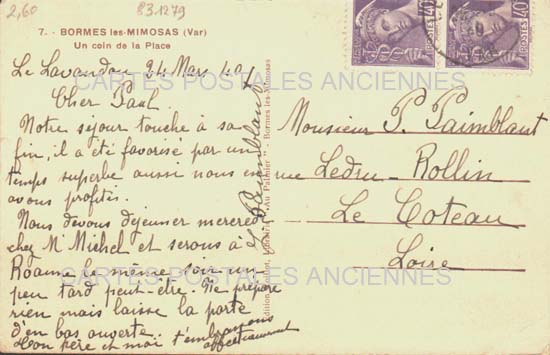 2,60
831279
7. - BORMES les-MIMOSAS (Var)
Un coin de la Place
POSTES 40c
POSTES 40c
Le Lavandou 24 Mars 40
Cher Paul.
Notre séjour touche à sa
fin, il a été favorisé par un
temps superbe aussi nous en
avons profité.
Nous devons déjeuner mercredi
chez Mr Michel et serons à
Roanne le même soir un
peu tard peut-être. Ne prépare
rien mais laisse la porte
d'en bas ouverte.
Ton père et moi t'embrassons
affectueusement
Paimblant
"Au Palmier" - Bormes-les-Mimosas
Monsieur P. Paimblant
rue Ledru-Rollin
Le Coteau
Loire
CARTES POSTALES ANCIENNES
CARTES POSTALES ANCIENNES